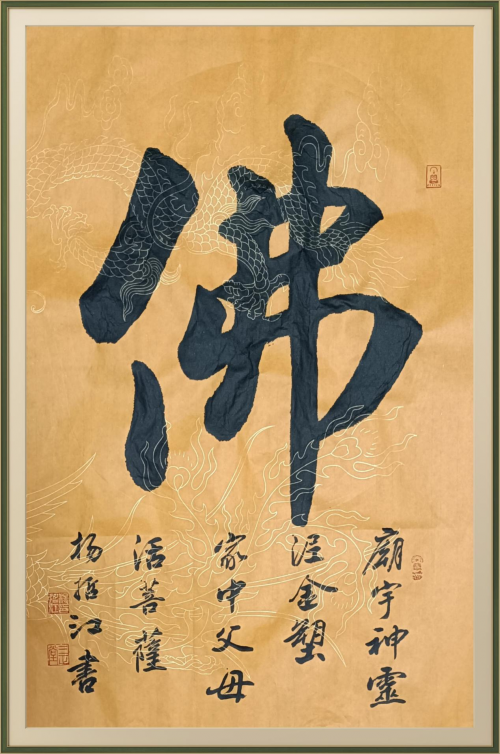 佛
廟宇神靈
泥金塑
家中父母
活菩薩
杨江書